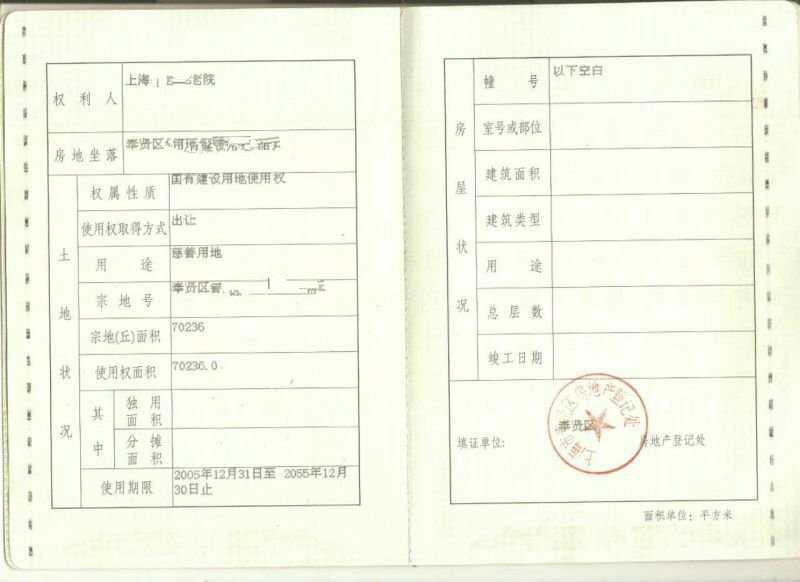 权利人
上海
老院
房地坐落
奉贤区
土地状况
权属性质
国有建设用地使用权
使用权取得方式
出让
用途
慈善用地
宗地号
奉贤区
宗地(丘)面积
70236
使用权面积
70236.0
其中
独用面积
分摊面积
使用期限
2005年12月31日至 2055年12月
30日止
房屋状况
幢号
以下空白
室号或部位
建筑面积
建筑类型
用途
总层数
竣工日期
填证单位:
奉贤区
房地产登记处
面积单位: 平方米